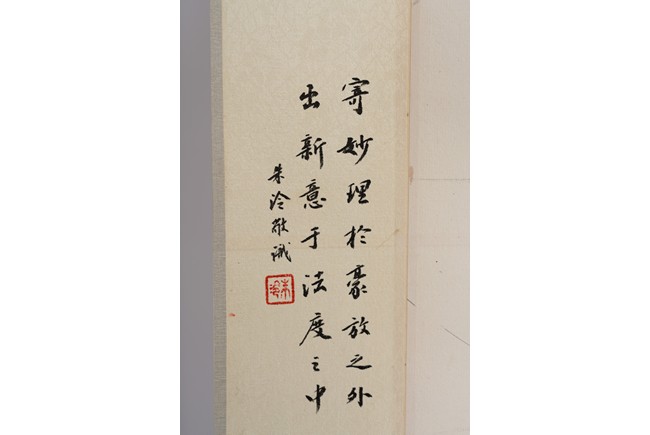 寄妙理於豪放之外
出新意于法度之中
朱泠敬識